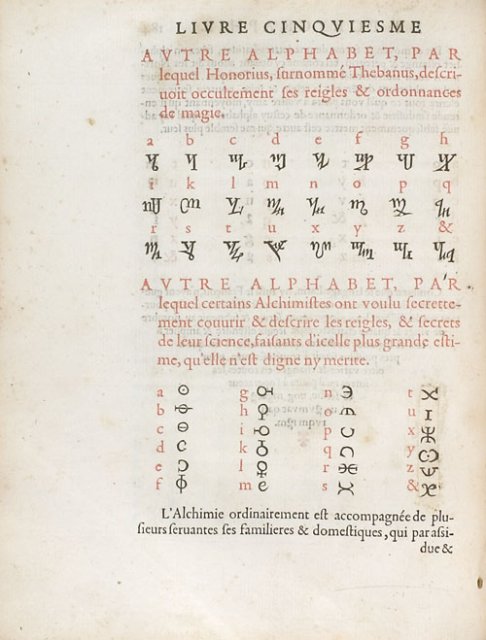 LIVRE CINQVIESME
AVTRE ALPHABET, PAR
lequel Honorius, ſurnommé Thebanus, deſcri-
uoit occultement ſes reigles & ordonnances
de magie.
a b c d e f g h
i k l m n o p q
r s t u x y z &
AVTRE ALPHABET, PAR
lequel certains Alchimiſtes ont voulu ſecrette-
ment couurir & deſcrire les reigles, & ſecrets
de leur ſcience, faiſants d'icelle plus grande eſti-
me, qu'elle n'eſt digne ny merite.
a g n t
b h o u
c i p x
d k q y
e l r z
f m s &
L'Alchimie ordinairement eſt accompagnée de plu-
ſieurs ſeruantes ſes familieres & domeſtiques, qui par aſſi-
due &